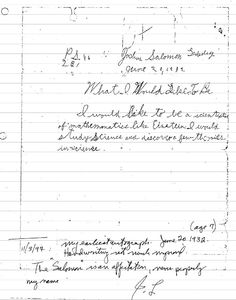 P.S. 86
Joshua Salomon
2B1
June 20, 1932
What I Would Like To Be
I would like to be a scientist
of mathematics like Einstein. I would
study science and discover a few things
in science.
(age 9)
11/3/92. my earliest autograph. June 20 1932.
Handwriting not much improved.
The "Salomon" is an affectation, now properly
my name